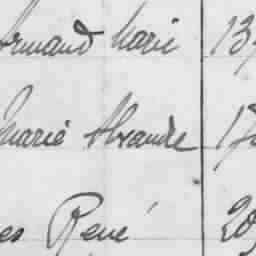 Armand Marie 13
Marie Alexandre 17
es René 20